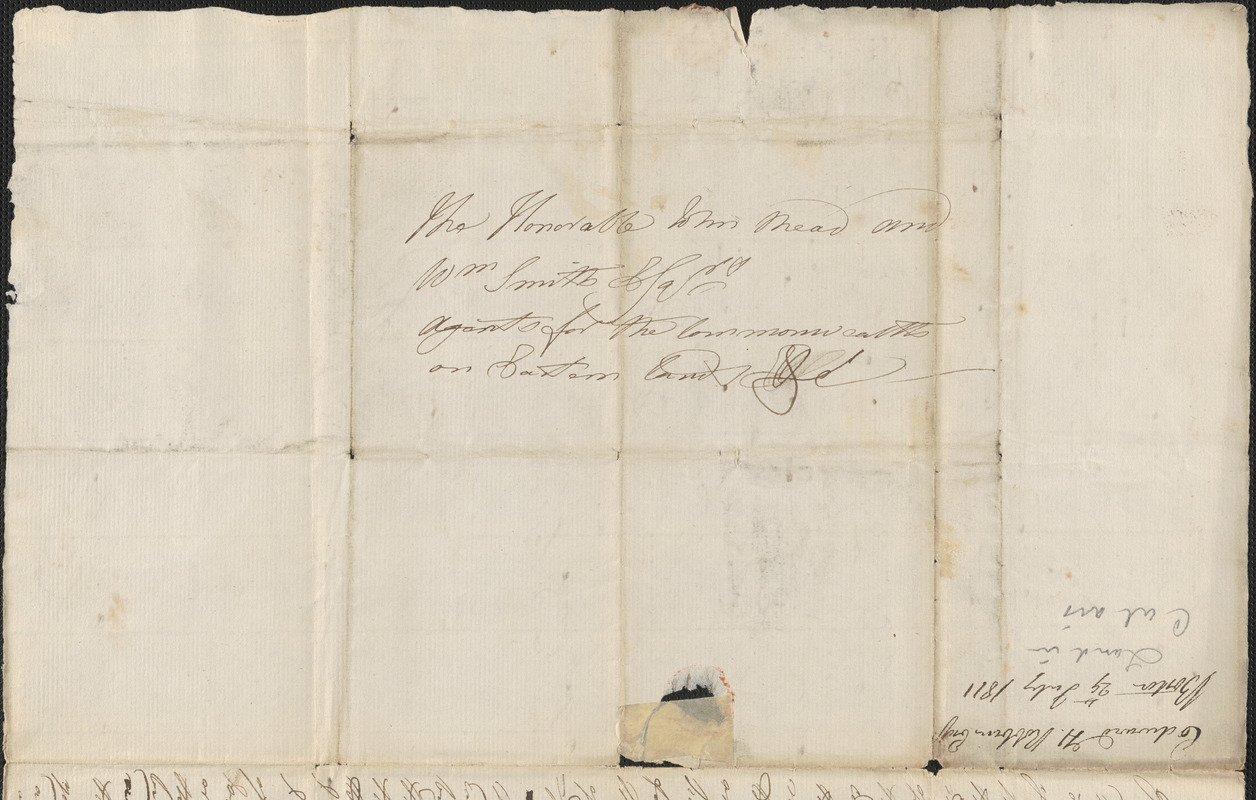 The Honorable John Read and
Wm Smith Esqrs
Agents for the Commonwealth
on Eastern Land
Edward H. Robbins Esq
Boston 29th July 1811
Land in
Calais